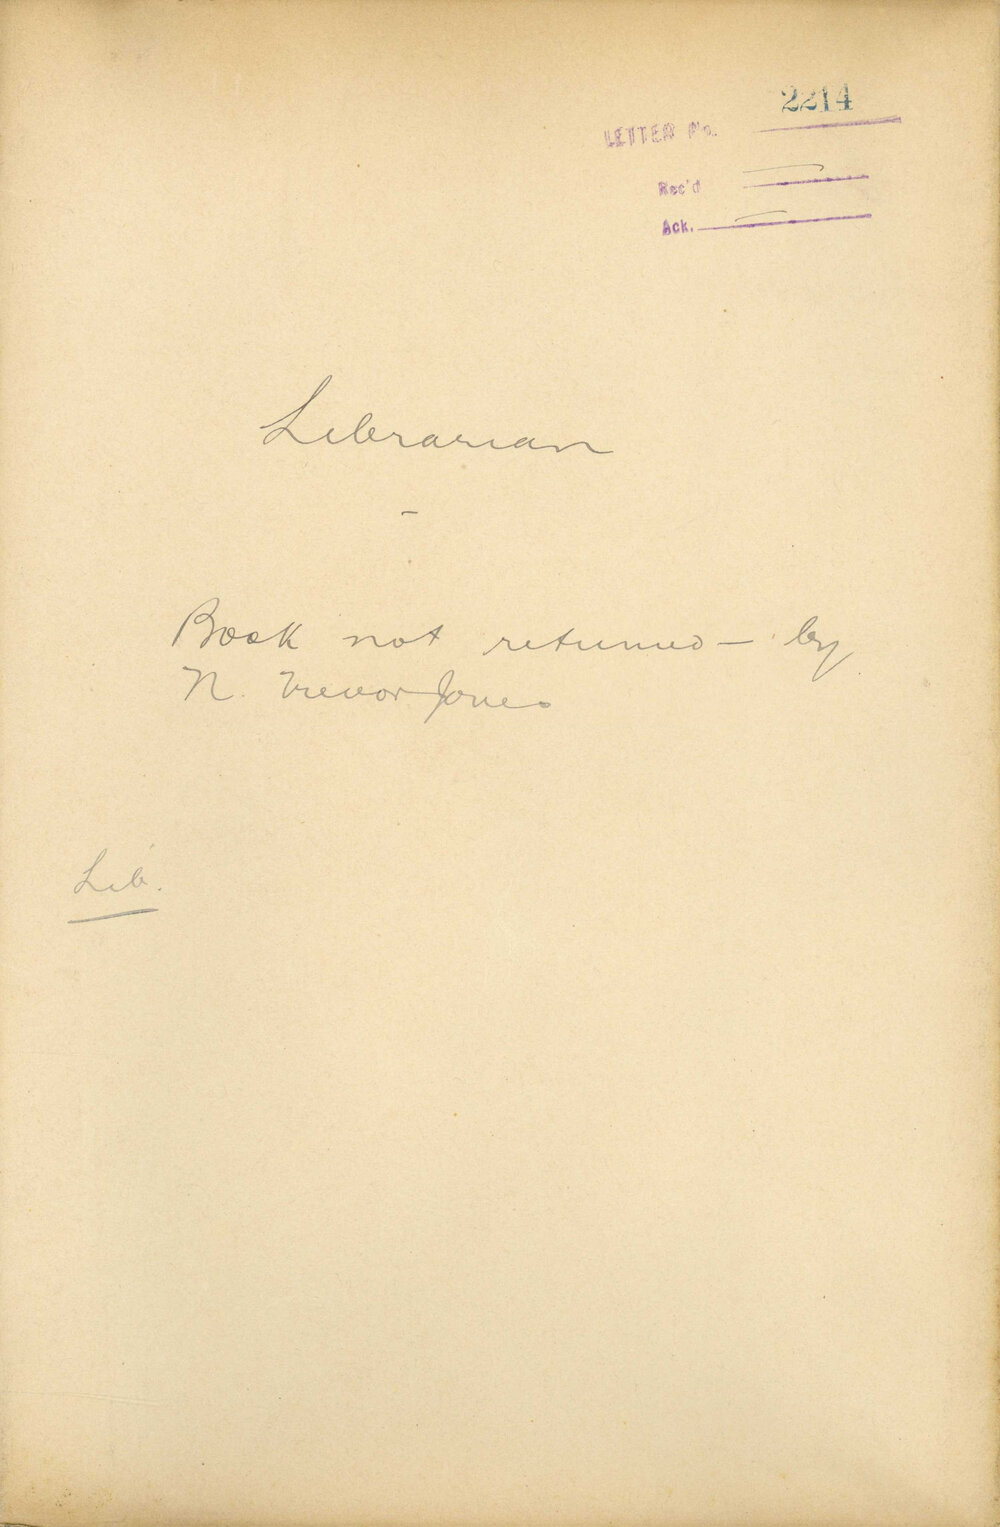 2214
LETTER No.
Rec'd —
Ack. —
Librarian
-
Book not returned - by
N. Trevor Jones
Lib.